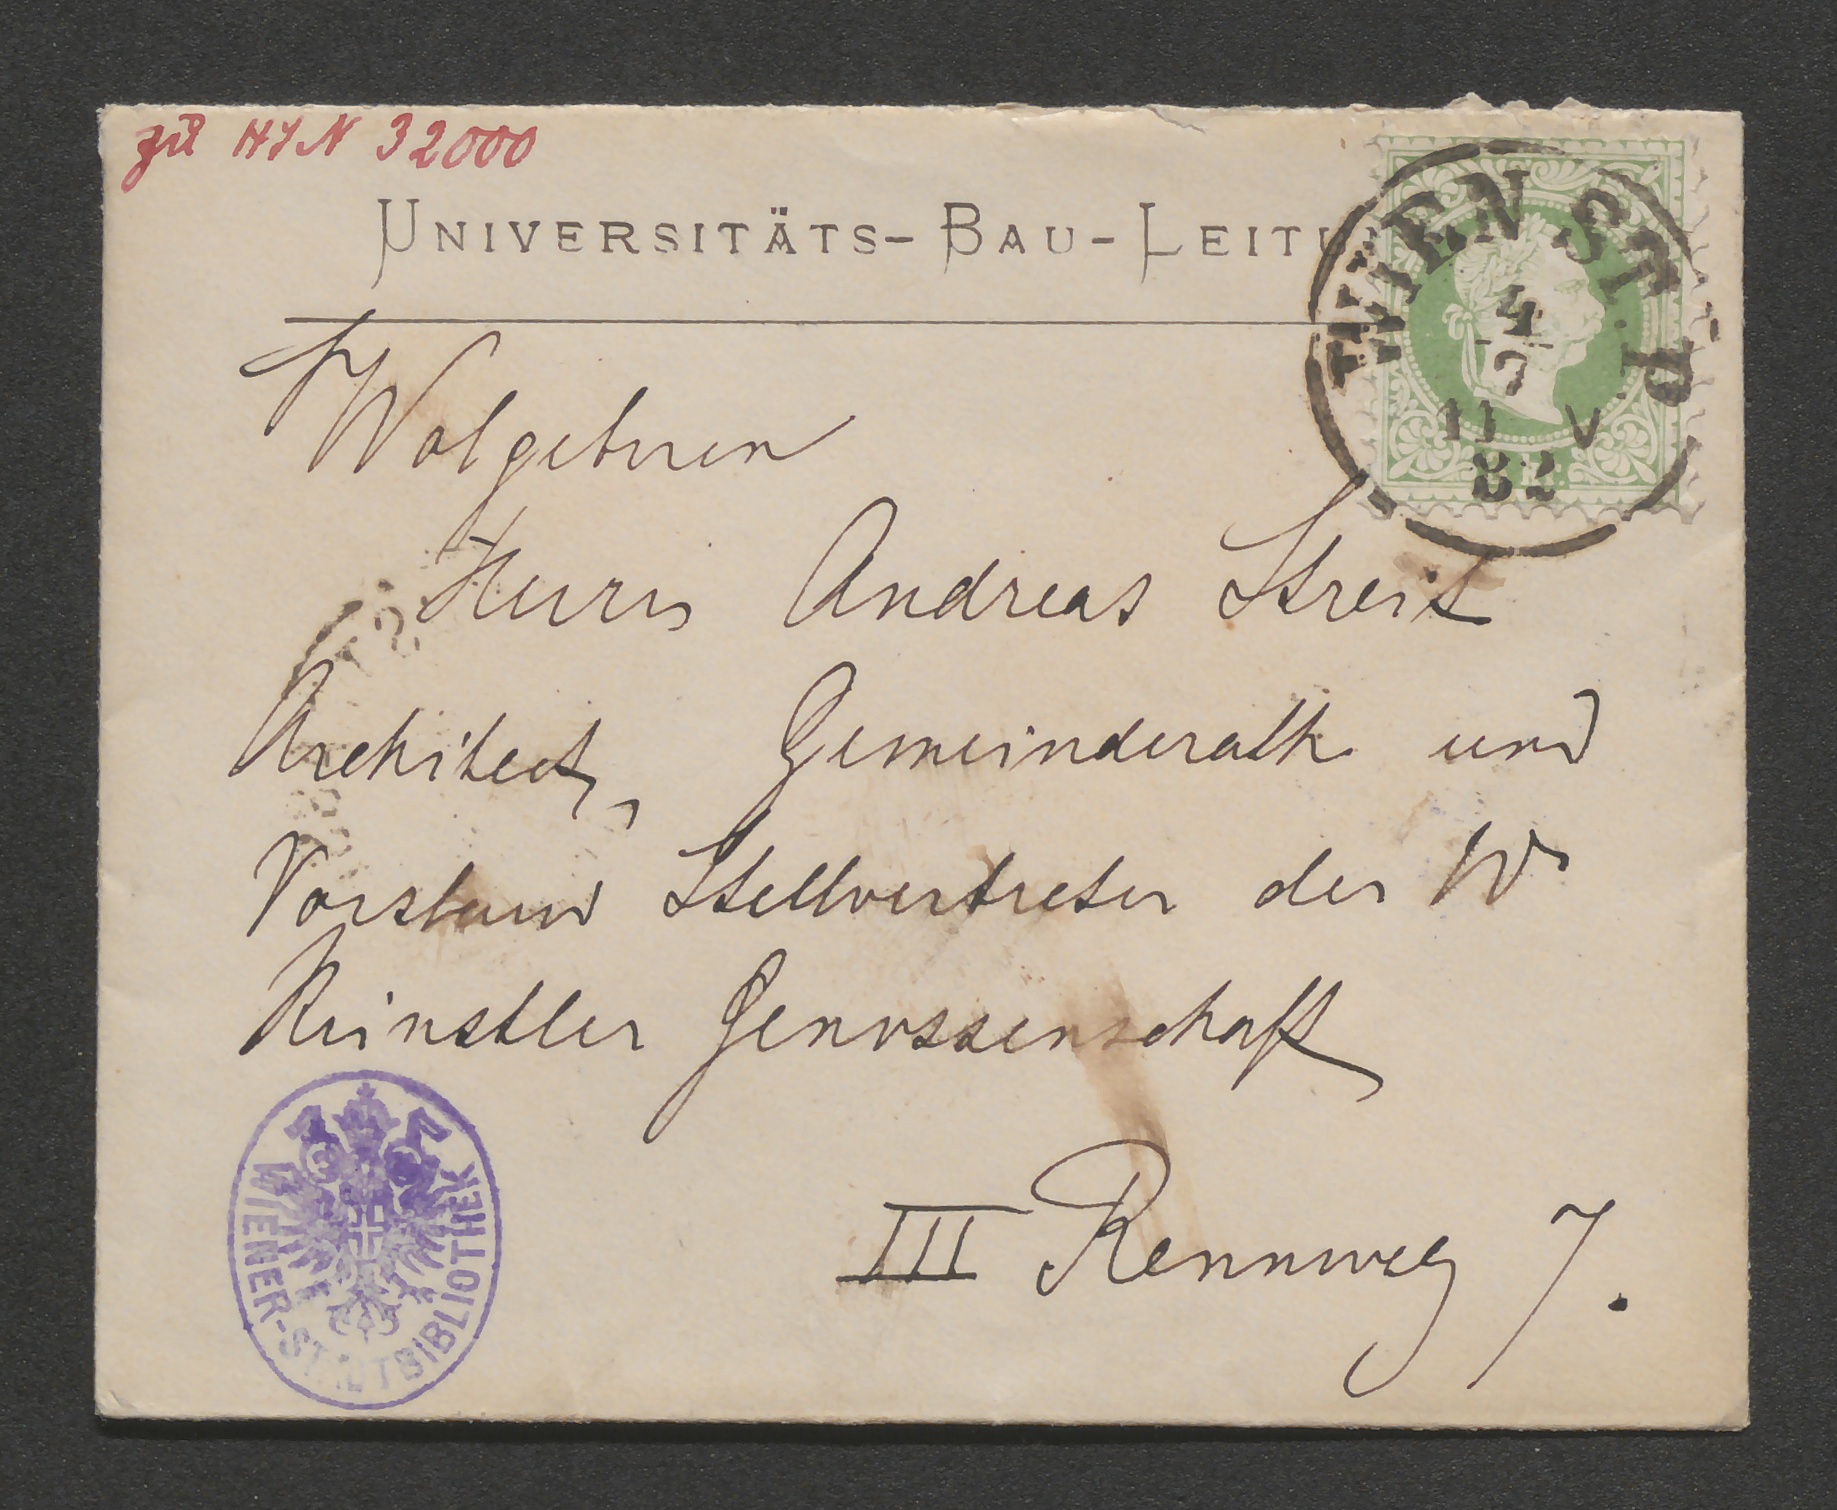 zu HIN 32000
UNIVERSITÄTS-BAU-LEITU
WIEN ST. P.
4
7
11 V.
82
Wolgeboren
Herrn Andreas Streit
Architect, Gemeinderath und
Vorstand Stellvertreter der W
Künstler Genossenschaft
III Rennweg 7.
WIENER-STADTBIBLIOTHEK